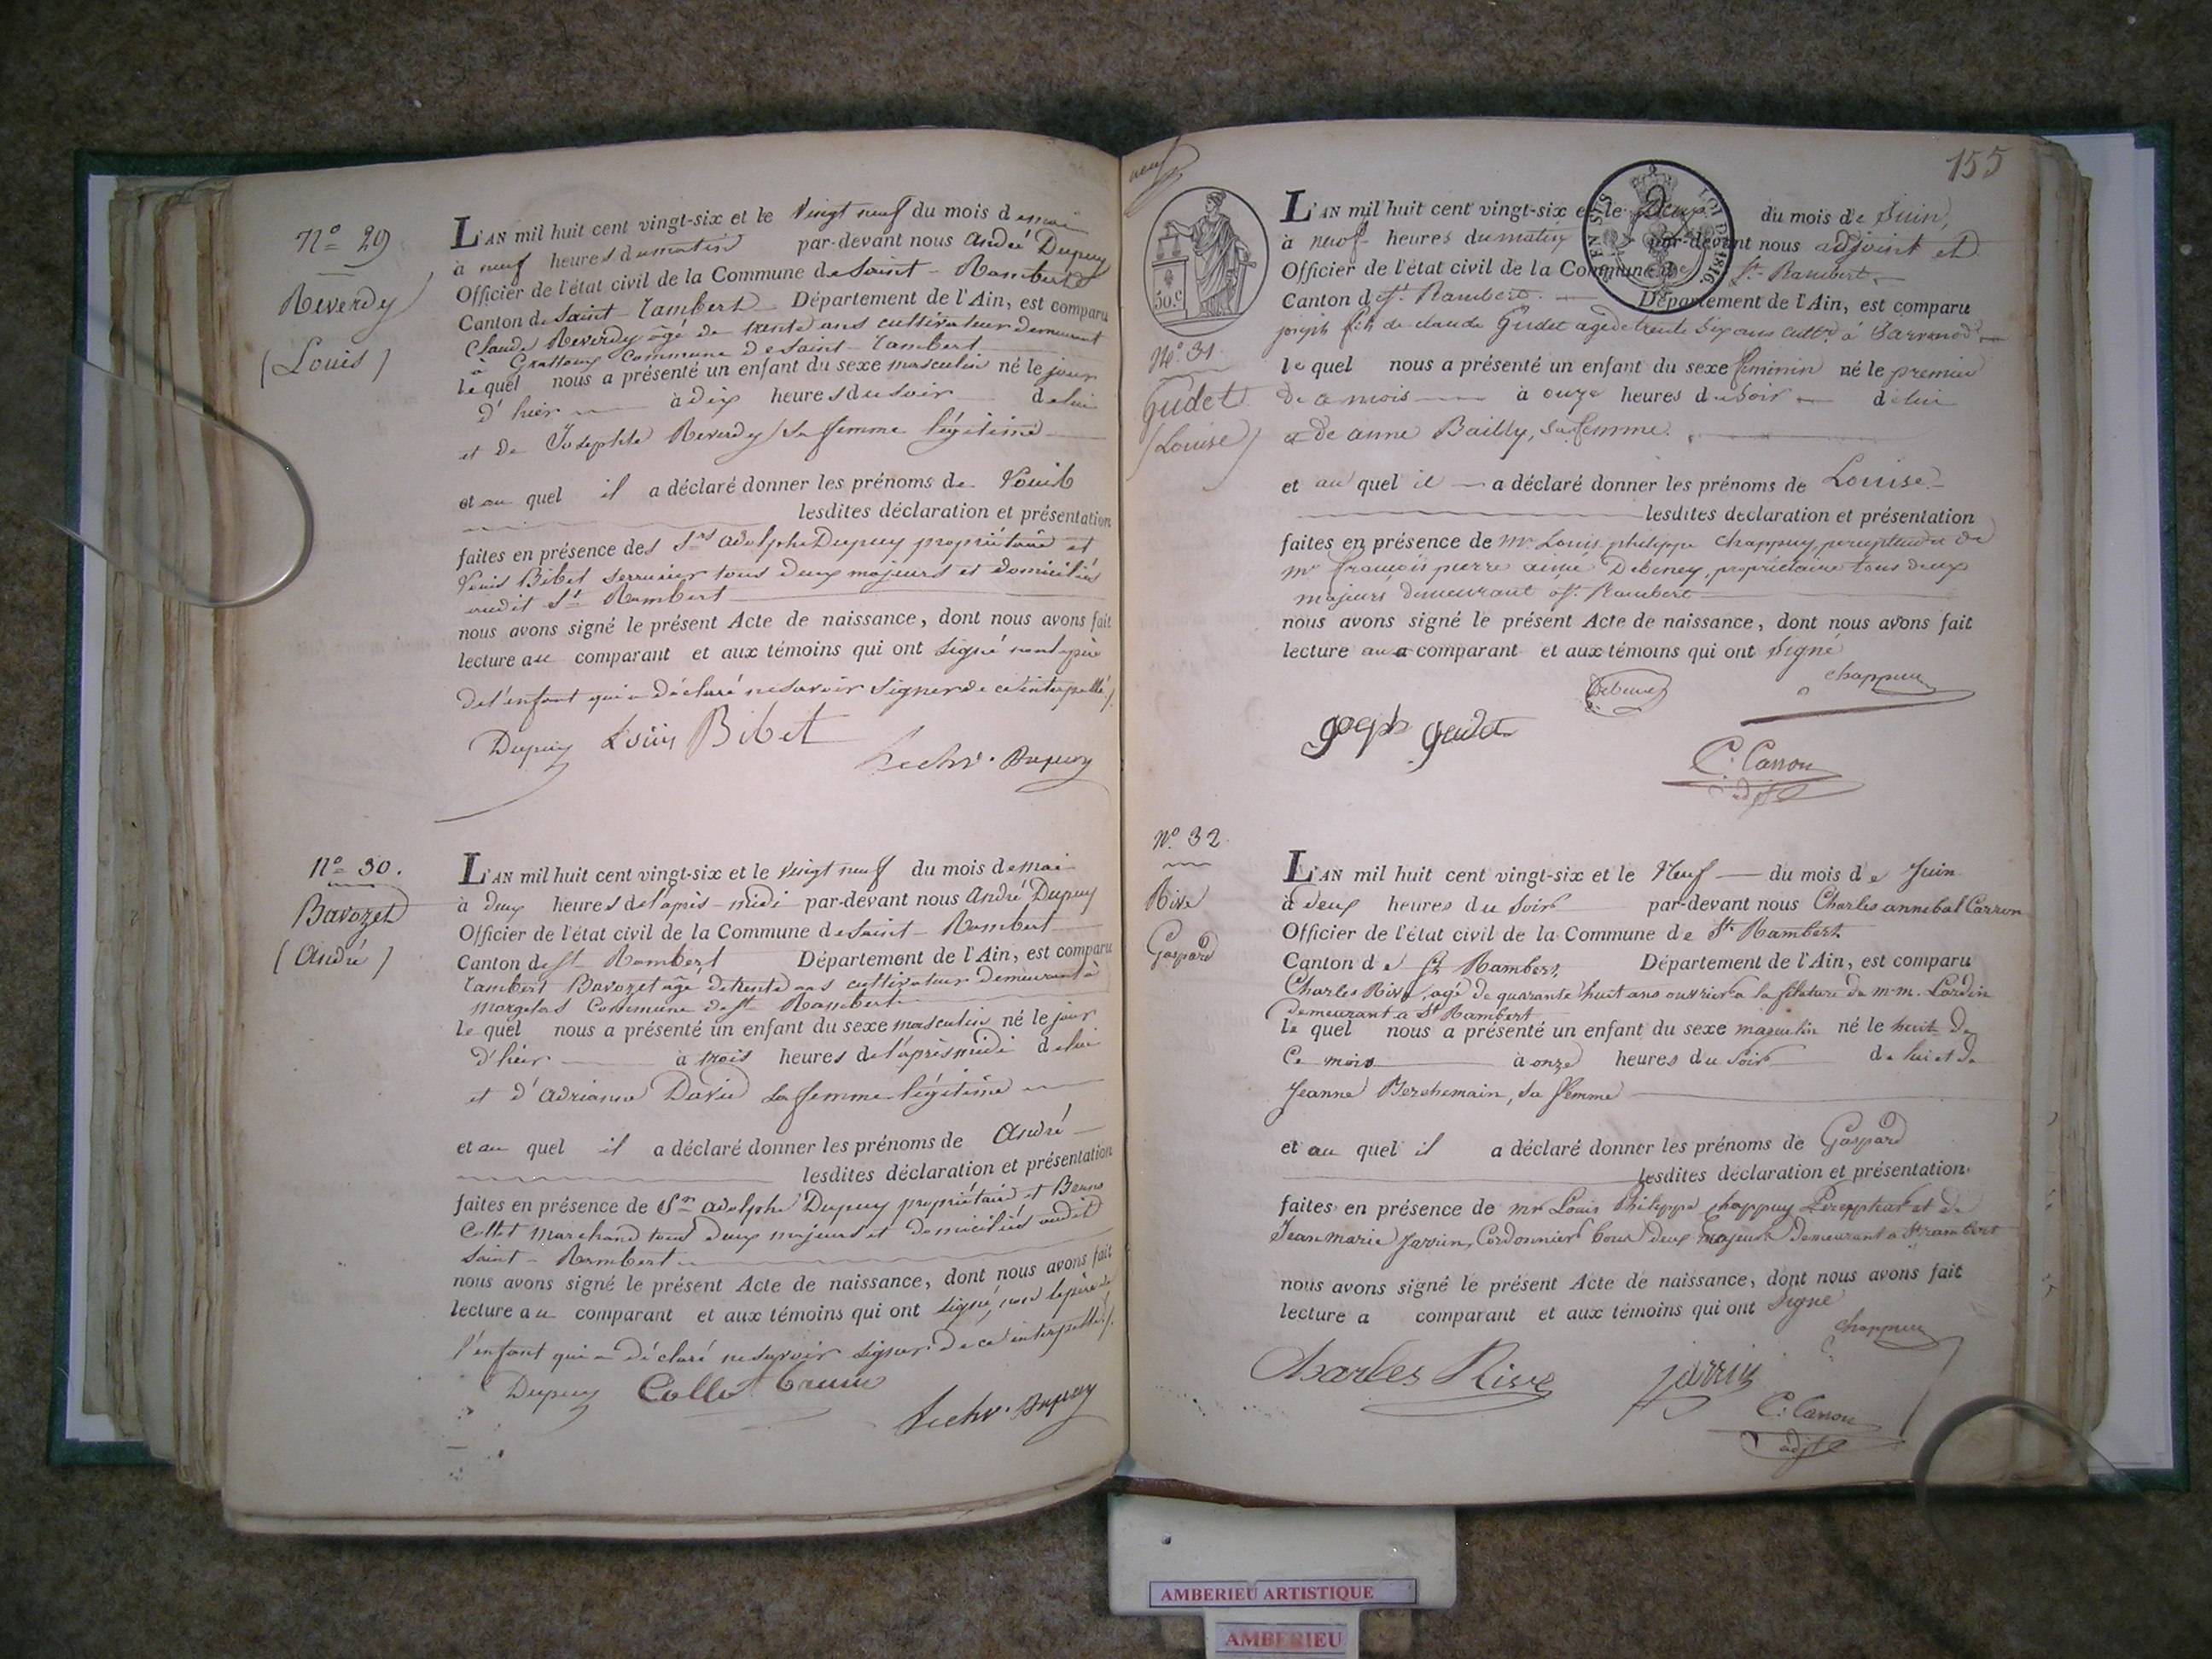 N° 29
Reverdy
(Louis)
L'AN mil huit cent vingt-six et le Vingt neuf du mois de mai
à neuf heures du matin par-devant nous André Dupuy
Officier de l'état civil de la Commune de Saint-Rambert
Canton de Saint-Rambert Département de l'Ain, est comparu
Claude Reverdy âgé de trente ans cultivateur demeurant
à Commune de Saint-Rambert
lequel nous a présenté un enfant du sexe masculin né le jour
d'hier à dix heures du soir de lui
et de Josephte Reverdy sa femme légitime
et au quel il a déclaré donner les prénoms de Louis
lesdites déclaration et présentation
faites en présence des Srs adolphe Dupuy propriétaire et
Louis Bibet serrurier tous deux majeurs et domiciliés
audit St Rambert
nous avons signé le présent Acte de naissance, dont nous avons fait
lecture au comparant et aux témoins qui ont signé non le père
de l'enfant qui a déclaré ne savoir signer de ce interpellé ./.
Dupuy Louis Bibet
Dupuy
N° 30.
Bavozet
(André)
L'AN mil huit cent vingt-six et le vingt neuf du mois de mai
à deux heures de l'après-midi par-devant nous André Dupuy
Officier de l'état civil de la Commune de Saint-Rambert
Canton de St Rambert Département de l'Ain, est comparu
Lambert Bavozet âgé de trente ans cultivateur demeurant à
Morgelas Commune de St Rambert
lequel nous a présenté un enfant du sexe masculin né le jour
d'hier à trois heures de l'après midi de lui
et d'adrianne David sa femme légitime
et au quel il a déclaré donner les prénoms de André
lesdites déclaration et présentation
faites en présence de Sr adolphe Dupuy propriétaire et Bruno
Collet marchand tous deux majeurs et domiciliés audit
Saint-Rambert
nous avons signé le présent Acte de naissance, dont nous avons fait
lecture au comparant et aux témoins qui ont signé, non le père de
l'enfant qui a déclaré ne savoir signer de ce interpellé ./.
Dupuy Collet bruno
Dupuy
155
50.c
LOI DE 1816
N° 31.
Gudet
(Louise)
L'AN mil huit cent vingt-six et le Deux du mois de Juin,
à neuf heures du matin par-devant nous adjoint et
Officier de l'état civil de la Commune de St Rambert
Canton de St Rambert. Département de l'Ain, est comparu
joseph fils de claude Gudet age de trente six ans cultr. à
lequel nous a présenté un enfant du sexe feminin né le premier
de ce mois à onze heures du Soir de lui
et de anne Bailly, sa femme.
et au quel il a déclaré donner les prénoms de Louise
lesdites declaration et présentation
faites en présence de Mr Louis philippe Chappuy, percepteur et de
Mr françois pierre aimé Debeney, propriétaire tous deux
majeurs demeurant à St Rambert
nous avons signé le présent Acte de naissance, dont nous avons fait
lecture au comparant et aux témoins qui ont signé
Debeney chappuy
joseph gudet
C. Carron
adjt
N° 32.
Rive
Gaspard
L'AN mil huit cent vingt-six et le Neuf du mois de Juin
à deux heures du Soir par-devant nous Charles annibal Carron
Officier de l'état civil de la Commune de St Rambert
Canton de St Rambert Département de l'Ain, est comparu
Charles Rive, agé de quarante huit ans ouvrier a la filature de m.m. Lardin
demeurant a St Rambert
le quel nous a présenté un enfant du sexe masculin né le huit de
Ce mois à onze heures du Soir de lui et de
Jeanne Berchemain, sa femme
et au quel il a déclaré donner les prénoms de Gaspard
lesdites déclaration et présentation
faites en présence de mr Louis Philippe chappuy Percepteur et de
Jean marie Jarrin, Cordonnier tous deux Majeurs Demeurant a St rambert
nous avons signé le présent Acte de naissance, dont nous avons fait
lecture a comparant et aux témoins qui ont Signé
chappuy
Charles Rive jarrin
C. Carron
adjt
AMBERIEU ARTISTIQUE
AMBERIEU